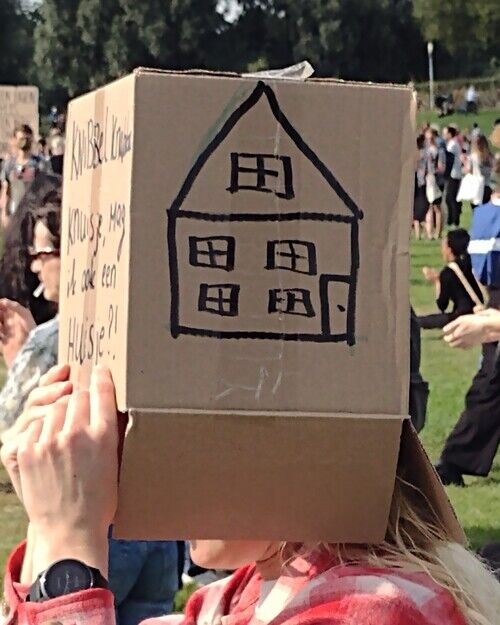 KNiBBEL KNABBEL
KNUiSJE, MAG
ik ook een
HUiSjE?!